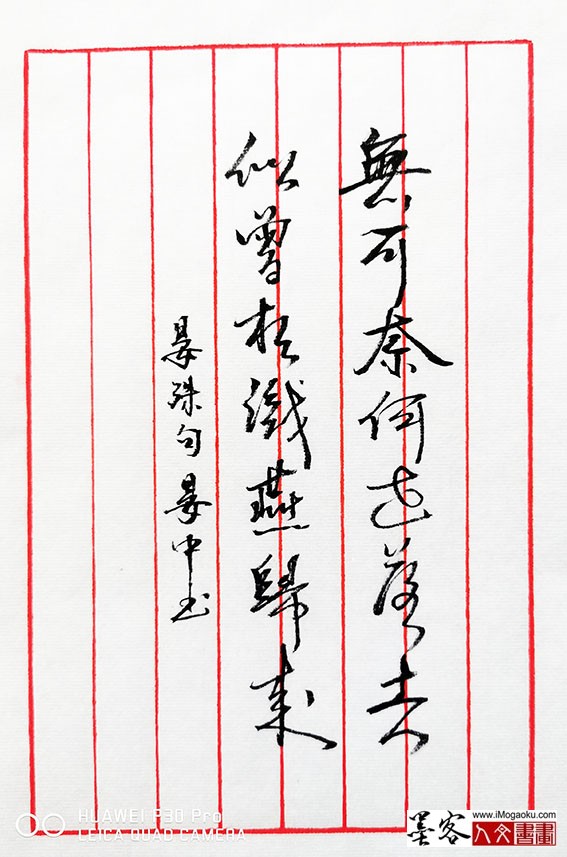 無可奈何花落去
似曾相識燕歸來
晏殊句晏中书
HUAWEI P30 Pro
LEICA QUAD CAMERA
墨客
www.iMogaoku.com
人文書畫